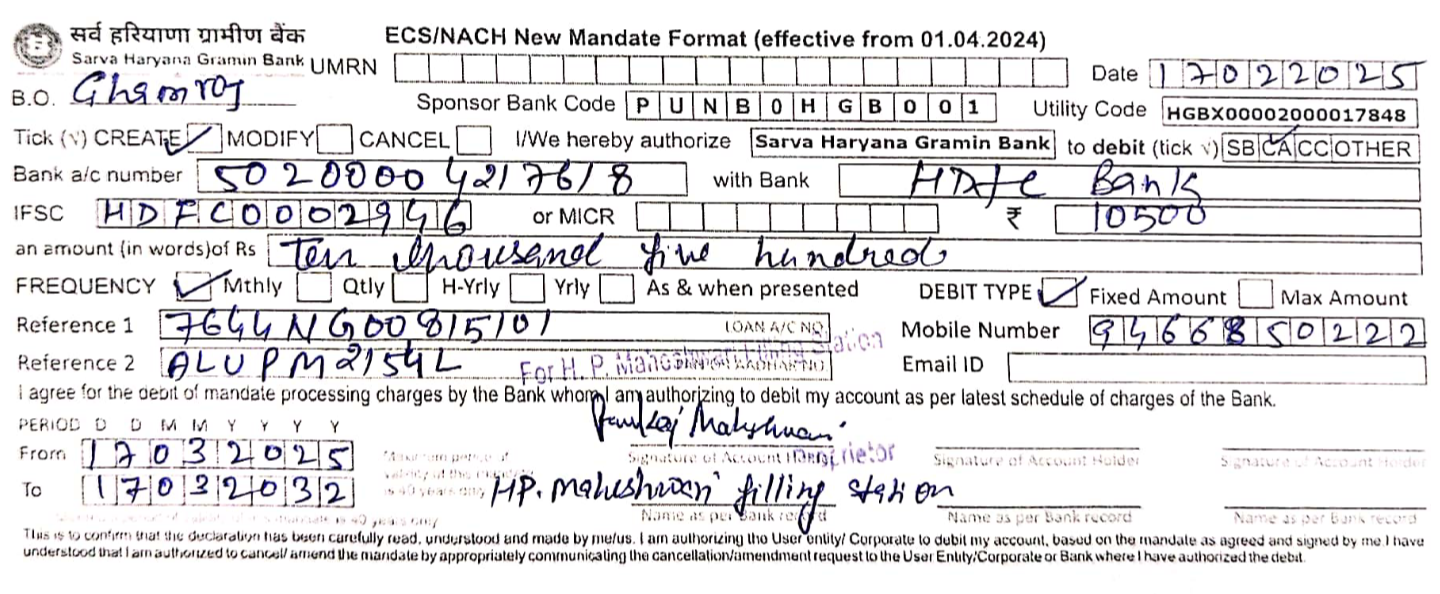 सर्व हरियाणा ग्रामीण बैंक ECS/NACH New Mandate Format (effective from 01.04.2024)
Sarva Haryana Gramin Bank UMRN Date 17022025
B.O. Ghamroj Sponsor Bank Code PUNB0HGB001 Utility Code HGBX00002000017848
Tick (√) CREATE ✓ MODIFY CANCEL I/We hereby authorize Sarva Haryana Gramin Bank to debit (tick √) SB CA CC OTHER
Bank a/c number 50200004217618 with Bank HDFC Bank
IFSC HDFC0002946 or MICR ₹ 10500
an amount (in words)of Rs Ten thousand five hundred
FREQUENCY ✓ Mthly Qtly H-Yrly Yrly As & when presented DEBIT TYPE ✓ Fixed Amount Max Amount
Reference 1 7644NG00815101 LOAN A/C NO. Mobile Number 9466850222
Reference 2 ALUPM2154L For H. P. Maheshwari Filling Station Email ID
I agree for the debit of mandate processing charges by the Bank whom I am authorizing to debit my account as per latest schedule of charges of the Bank.
PERIOD D D M M Y Y Y Y Pankaj Maheshwari
From 17032025 Signature of Account Proprietor Signature of Account Holder Signature of Account Holder
To 17032032 HP. Maheshwari filling station
Name as per Bank record Name as per Bank record Name as per Bank record
This is to confirm that the declaration has been carefully read, understood and made by me/us. I am authorizing the User entity/ Corporate to debit my account, based on the mandate as agreed and signed by me.I have
understood that I am authorized to cancel/ amend the mandate by appropriately communicating the cancellation/amendment request to the User Entity/Corporate or Bank where I have authorized the debit.